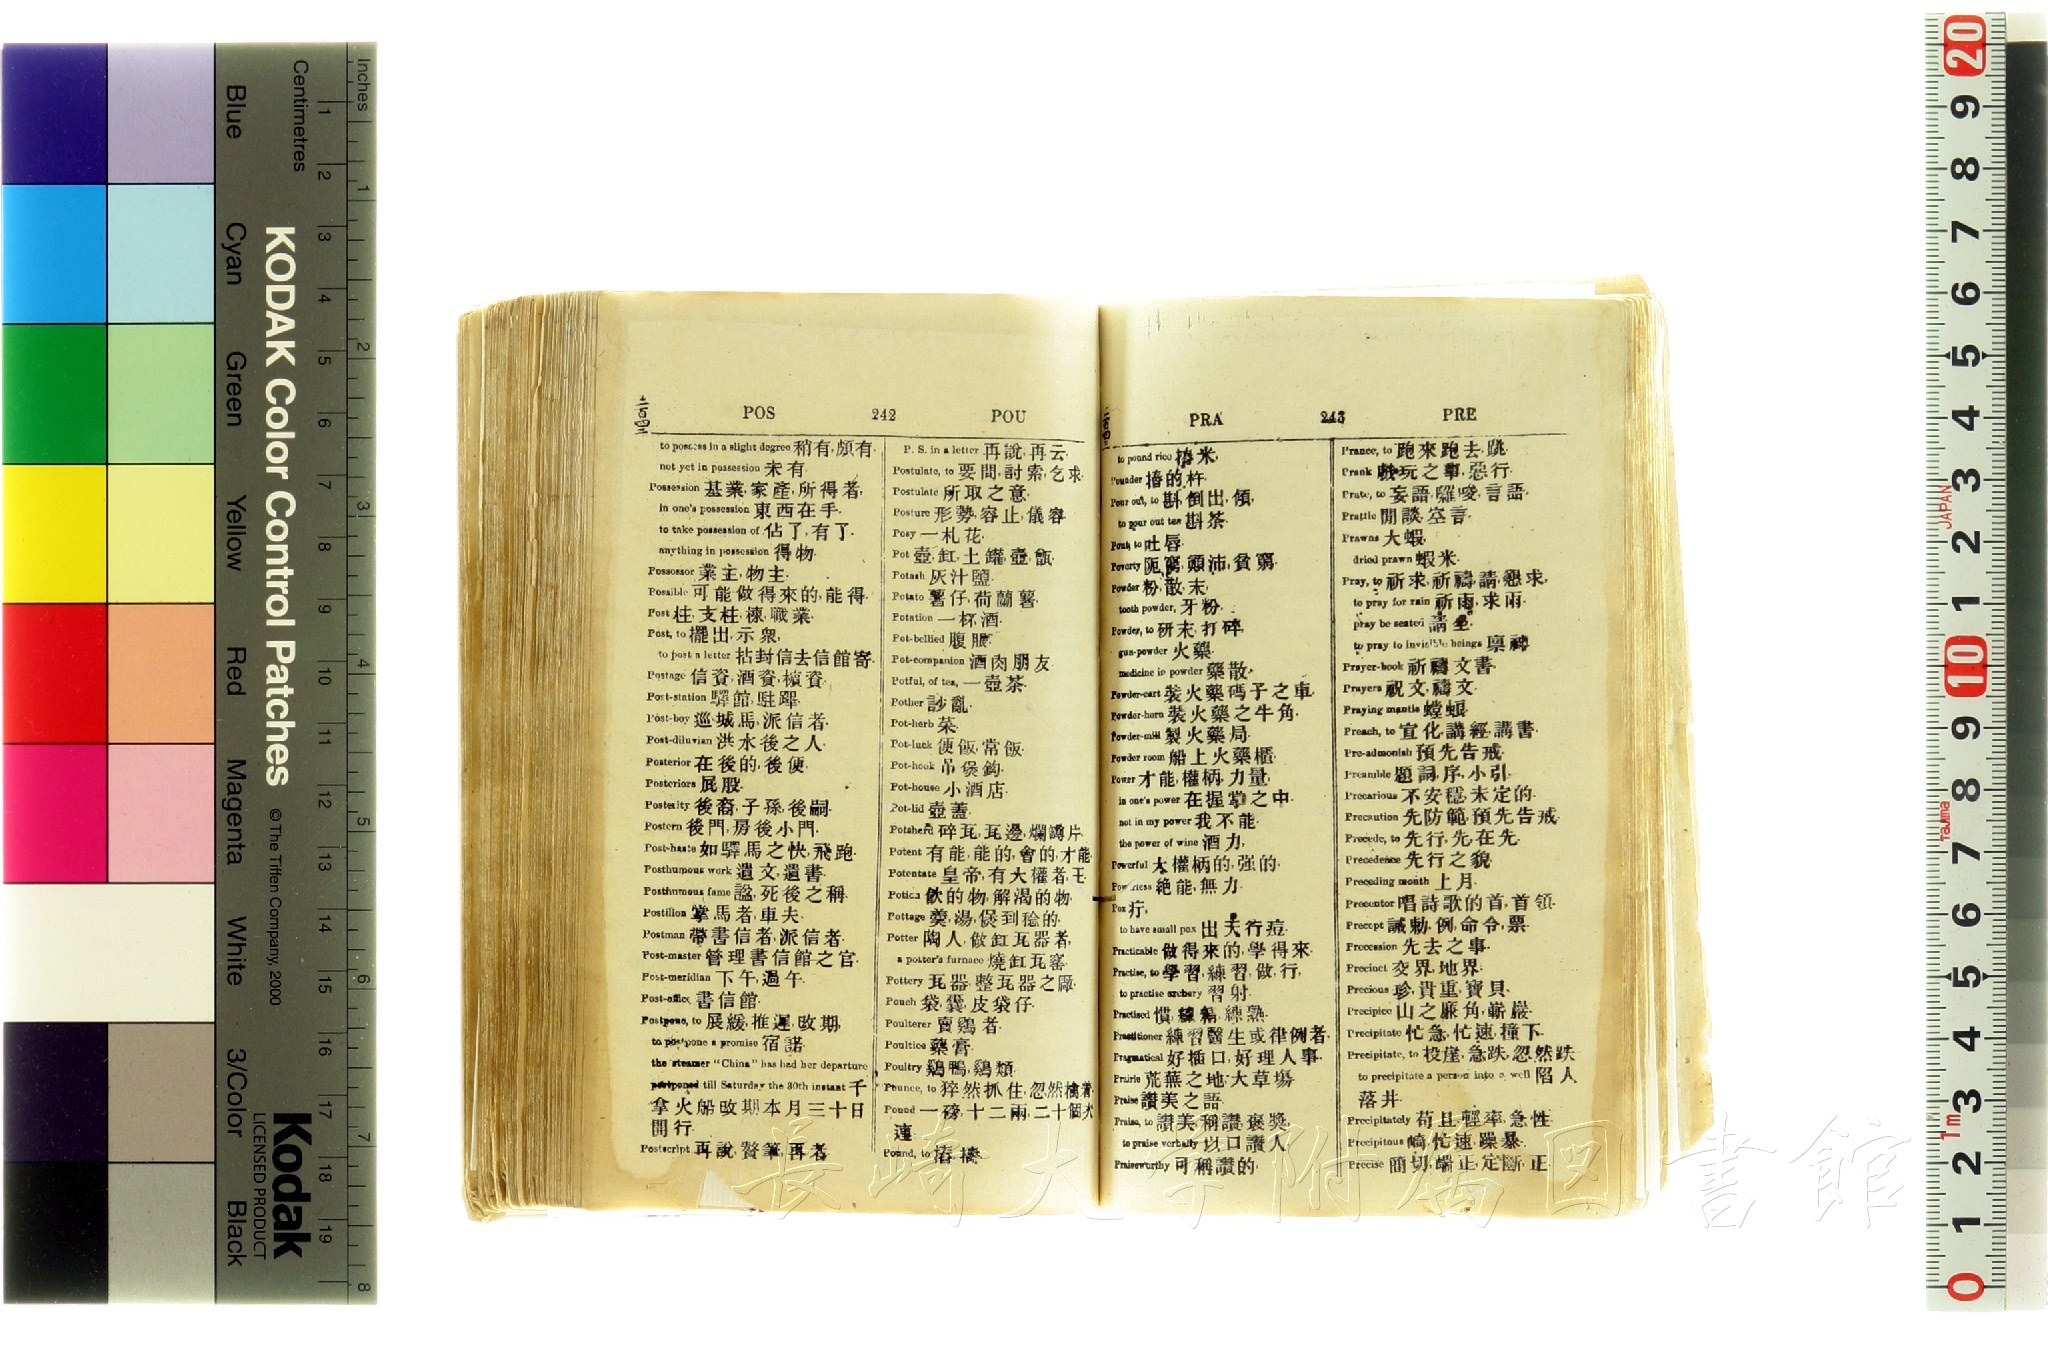 Inches
Centimetres
KODAK Color Control Patches
© The Tiffen Company, 2000
Kodak
LICENSED PRODUCT
Blue
Cyan
Green
Yellow
Red
Magenta
White
3/Color
Black
POS 242 POU
to possess in a slight degree 稍有,頗有.
not yet in possession 未有.
Possession 基業,家產,所得者,
in one's possession 東西在手.
to take possession of 佔了,有了.
anything in possession 得物.
Possessor 業主,物主.
Possible 可能做得來的,能得.
Post 柱,支柱,棟,職業.
Post, to 擺出,示衆,
to post a letter 拈封信去信館寄.
Postage 信資,酒資,槓資.
Post-station 驛館,駐蹕.
Post-boy 巡城馬,派信者.
Post-diluvian 洪水後之人.
Posterior 在後的,後便.
Posteriors 屁股.
Posterity 後裔,子孫,後嗣.
Postern 後門,房後小門.
Post-haste 如驛馬之快,飛跑.
Posthumous work 遺文,遺書.
Posthumous fame 謚,死後之稱.
Postilion 掌馬者,車夫.
Postman 帶書信者,派信者.
Post-master 管理書信館之官.
Post-meridian 下午,過午.
Post-office 書信館.
Postpone, to 展緩,推遲,改期,
to postpone a promise 宿諾
the steamer "China" has had her departure
postponed till Saturday the 30th instant 千
拿火船改期本月三十日
開行.
Postscript 再說,贅筆,再者
P. S. in a letter 再說,再云.
Postulate, to 要問,討索,乞求.
Postulate 所取之意.
Posture 形勢,容止,儀容
Posy 一札花.
Pot 壺,缸,土罐,壺,瓿.
Potash 灰汁鹽.
Potato 薯仔,荷蘭薯.
Potation 一杯酒.
Pot-bellied 腹脹.
Pot-companion 酒肉朋友.
Potful, of tea, 一壺茶.
Pother 訬亂.
Pot-herb 菜.
Pot-luck 便飯,常飯.
Pot-hook 吊煲鈎.
Pot-house 小酒店.
Pot-lid 壺蓋.
Potsherd 碎瓦,瓦邊,爛罇片.
Potent 有能,能的,會的,才能.
Potentate 皇帝,有大權者,王.
Potion 飲的物,解渴的物.
Pottage 羹,湯,煲到稔的.
Potter 陶人,做缸瓦器者,
a potter's furnace 燒缸瓦窰.
Pottery 瓦器,整瓦器之廠.
Pouch 袋,囊,皮袋仔.
Poulterer 賣鷄者.
Poultice 藥膏.
Poultry 鷄鴨,鷄類.
Pounce, to 猝然抓住,忽然擒着.
Pound 一磅,十二兩,二十個大
連
Pound, to 舂
PRA 243 PRE
to pound rice 舂米,
Pounder 摏的杵.
Pour out, to 斟,倒出,傾,
to pour out tea 斟茶.
Pout, to 吐唇.
Poverty 阨窮,顛沛,貧窮.
Powder 粉,散,末,
tooth powder, 牙粉.
Powder, to 研末,打碎,
gun-powder 火藥.
medicine in powder 藥散.
Powder-cart 裝火藥碼子之車.
Powder-horn 裝火藥之牛角.
Powder-mill 製火藥局.
Powder room 船上火藥櫃.
Power 才能,權柄,力量,
in one's power 在握掌之中.
not in my power 我不能.
the power of wine 酒力.
Powerful 大權柄的,強的.
Powerless 絕能,無力.
Pox 疔,
to have small pox 出天行痘.
Practicable 做得來的,學得來.
Practise, to 學習,練習,做,行,
to practise archery 習射.
Practised 慣,練精,練熟.
Practitioner 練習醫生或律例者.
Pragmatical 好插口,好理人事.
Prairie 荒蕪之地,大草塲.
Praise 讚美之語.
Praise, to 讚美,稱讚,褒獎,
to praise verbally 以口讚人.
Praiseworthy 可稱讚的.
Prance, to 跑來跑去,跳.
Prank 戲玩之事,惡行.
Prate, to 妄語,囉唆,言語.
Prattle 閒談,空言.
Prawns 大蝦,
dried prawn 蝦米.
Pray, to 祈求,祈禱,請,懇求,
to pray for rain 祈雨,求雨.
pray be seated 請坐.
to pray to invisible beings 禀神
Prayer-book 祈禱文書.
Prayers 祝文,禱文.
Praying mantis 螳螂.
Preach, to 宣化,講經,講書.
Pre-admonish 預先告戒.
Preamble 題詞,序,小引.
Precarious 不安穩,未定的.
Precaution 先防範,預先告戒.
Precede, to 先行,先在先.
Precedence 先行之貌
Preceding month 上月.
Precentor 唱詩歌的首,首領.
Precept 誡勅,例,命令,票.
Precession 先去之事.
Precinct 交界,地界.
Precious 珍,貴重,寶貝.
Precipice 山之廉角,嶄巖.
Precipitate 忙急,忙速,撞下.
Precipitate, to 投崖,急跌,忽然跌
to precipitate a person into a well 陷人
落井.
Precipitately 苟且,輕率,急性.
Precipitous 崎,忙速,躁暴.
Precise 簡切,端正,定斷,正
長崎大学附属図書館
JAPAN
Tajima
1m